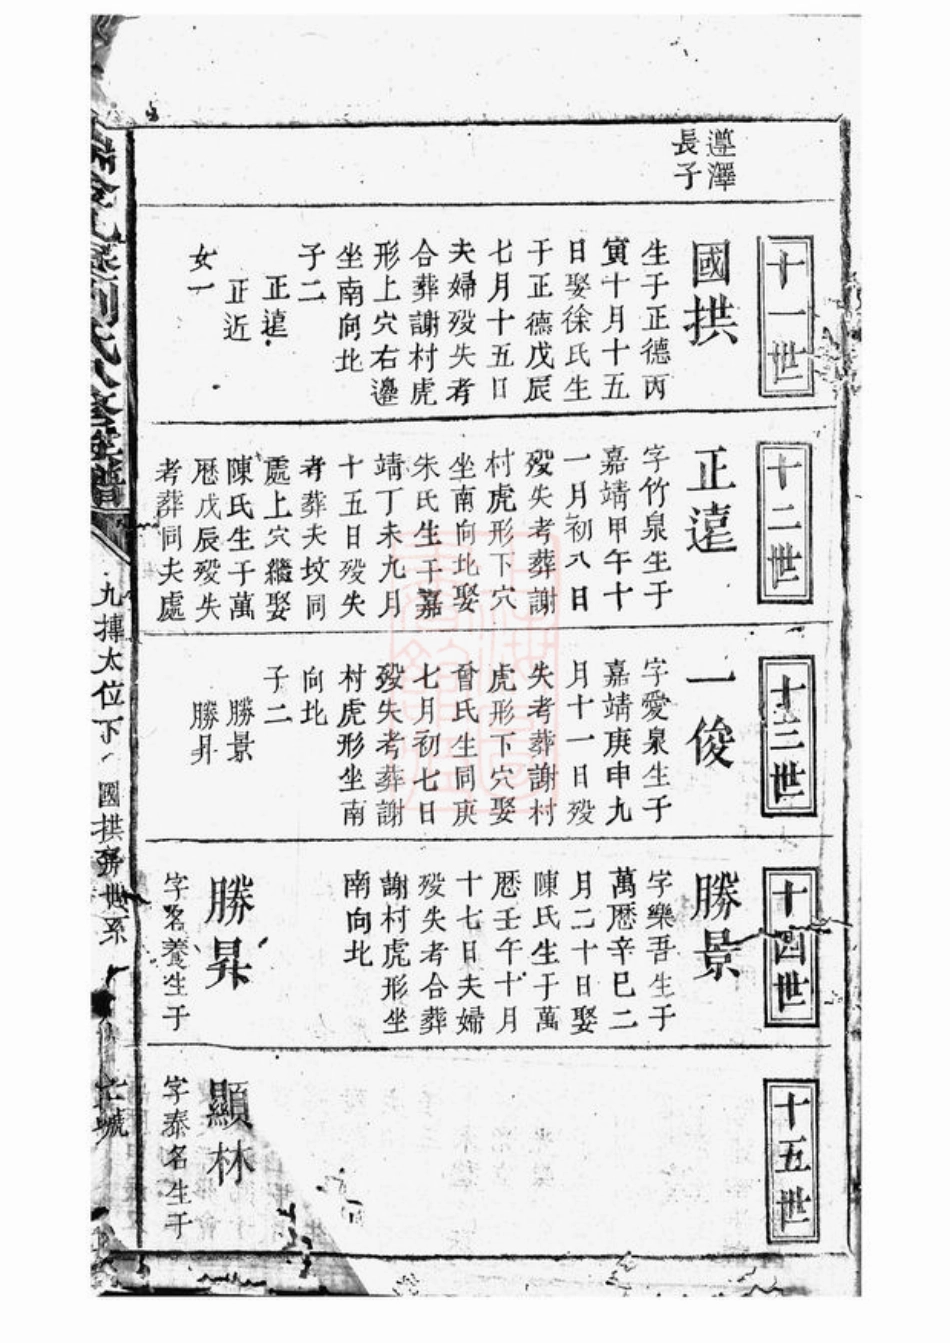 遵澤
長子
十一世
國拱
生于正德丙
寅十月十五
日娶徐氏生
于正德戊辰
七月十五日
夫婦殁失考
合葬謝村虎
形上穴右邊
坐南向北
子二
正遠
正近
女一
十二世
正遠
字竹泉生于
嘉靖甲午十
一月初八日
殁失考葬謝
村虎形下穴
坐南向北娶
朱氏生于嘉
靖丁未九月
十五日殁失
考葬夫坟同
處上穴繼娶
陳氏生于萬
厯戊辰殁失
考葬同夫處
十三世
一俊
字愛泉生于
嘉靖庚申九
月十一日殁
失考葬謝村
虎形下穴娶
曾氏生同庚
七月初七日
殁失考葬謝
村虎形坐南
向北
子二
勝景
勝昇
十四世
勝景
字樂吾生于
萬厯辛巳二
月二十日娶
陳氏生于萬
厯壬午十月
十七日夫婦
殁失考合葬
謝村虎形坐
南向北
勝昇
字名養生于
十五世
顯林
字泰名生于
劉氏八修宗譜
九摶太位下
國拱房世系
號